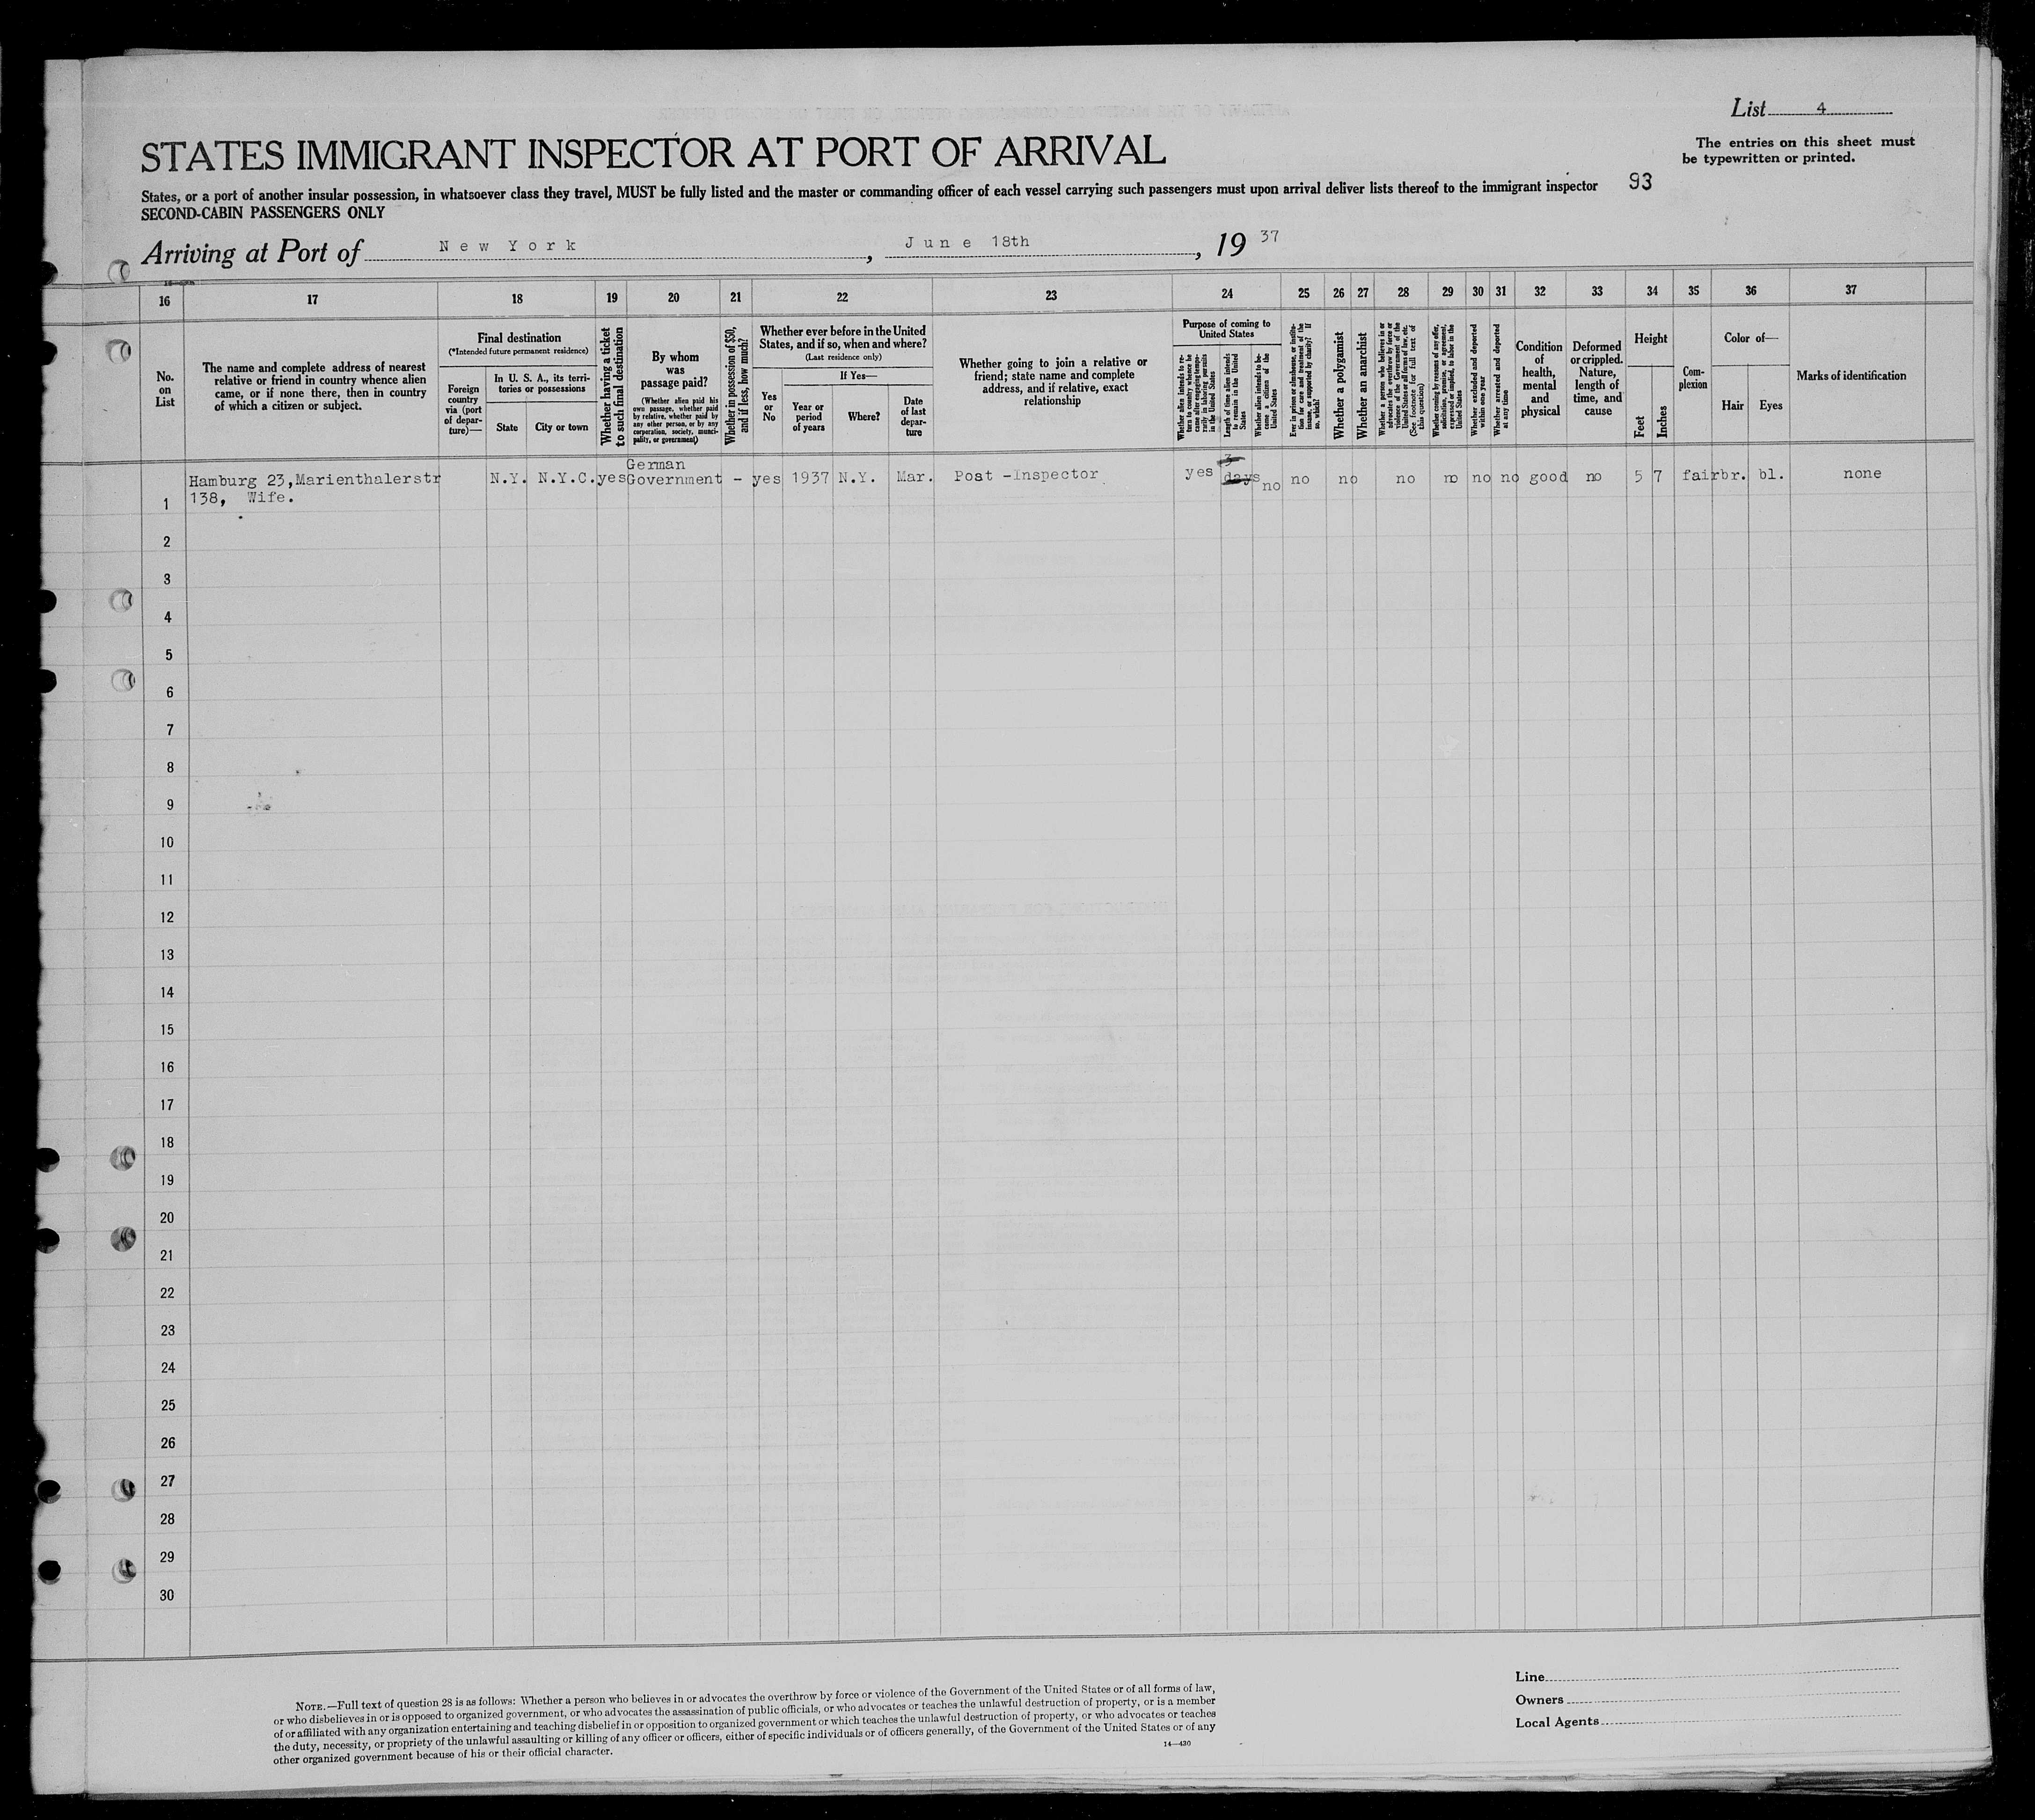 List 4
The entries on this sheet must
be typewritten or printed.
STATES IMMIGRANT INSPECTOR AT PORT OF ARRIVAL
States, or a port of another insular possession, in whatsoever class they travel, MUST be fully listed and the master or commanding officer of each vessel carrying such passengers must upon arrival deliver lists thereof to the immigrant inspector
93
SECOND-CABIN PASSENGERS ONLY
Arriving at Port of New York, June 18th, 19 37
16 17 18 19 20 21 22 23 24 25 26 27 28 29 30 31 32 33 34 35 36 37
No.
on
List
The name and complete address of nearest
relative or friend in country whence alien
came, or if none there, then in country
of which a citizen or subject.
Final destination
(*Intended future permanent residence)
Foreign
country
via (port
of depar-
ture)—
In U. S. A., its terri-
tories or possessions
State
City or town
Whether having a ticket
to such final destination
By whom
was
passage paid?
(Whether alien paid his
own passage, whether paid
by relative, whether paid by
any other person, or by any
corporation, society, munici-
pality, or government)
Whether in possession of $50,
and if less, how much?
Whether ever before in the United
States, and if so, when and where?
(Last residence only)
Yes
or
No
If Yes—
Year or
period
of years
Where?
Date
of last
depar-
ture
Whether going to join a relative or
friend; state name and complete
address, and if relative, exact
relationship
Purpose of coming to
United States
Whether alien intends to re-
turn to country whence he
came after engaging tempo-
rarily in laboring pursuits
in the United States
Length of time alien intends
to remain in the United
States
Whether alien intends to be-
come a citizen of the
United States
Ever in prison or almshouse, or institu-
tion for care and treatment of the
insane, or supported by charity? If
so, which?
Whether a polygamist
Whether an anarchist
Whether a person who believes in or
advocates the overthrow by force or
violence of the Government of the
United States or all forms of law, etc.
(See footnote for full text of
this question)
Whether coming by reasons of any offer,
solicitation, promise, or agreement,
expressed or implied, to labor in the
United States
Whether excluded and deported
within one year
Whether arrested and deported
at any time
Condition
of
health,
mental
and
physical
Deformed
or crippled.
Nature,
length of
time, and
cause
Height
Feet
Inches
Com-
plexion
Color of—
Hair
Eyes
Marks of identification
1 Hamburg 23,Marienthalerstr N.Y. N.Y.C. yes German - yes 1937 N.Y. Mar. Post -Inspector yes 3 no no no no no no no good no 5 7 fair br. bl. none
138, Wife. Government days
2
3
4
5
6
7
8
9
10
11
12
13
14
15
16
17
18
19
20
21
22
23
24
25
26
27
28
29
30
NOTE.—Full text of question 28 is as follows: Whether a person who believes in or advocates the overthrow by force or violence of the Government of the United States or of all forms of law,
or who disbelieves in or is opposed to organized government, or who advocates the assassination of public officials, or who advocates or teaches the unlawful destruction of property, or is a member
of or affiliated with any organization entertaining and teaching disbelief in or opposition to organized government or which teaches the unlawful destruction of property, or who advocates or teaches
the duty, necessity, or propriety of the unlawful assaulting or killing of any officer or officers, either of specific individuals or of officers generally, of the Government of the United States or of any
other organized government because of his or their official character.
14—430
Line
Owners
Local Agents